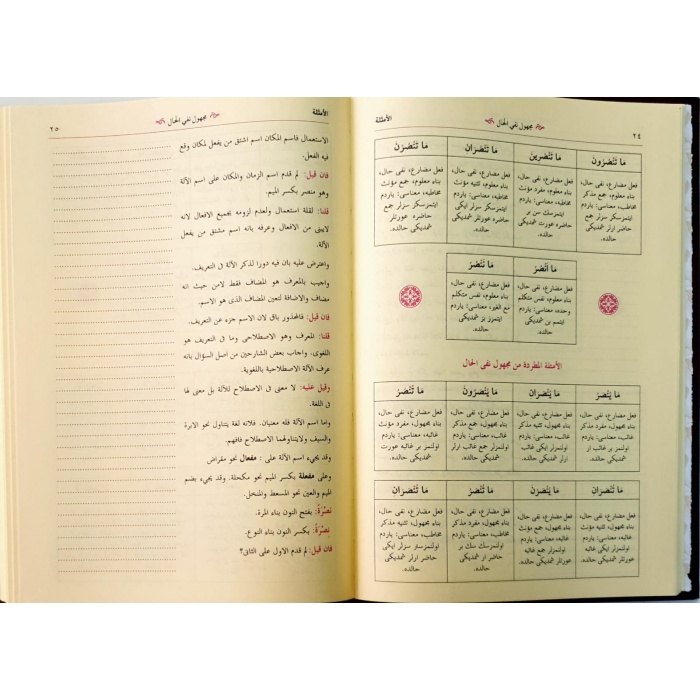 ٢٤
مجهول نفى الحال
الأمثلة
مَا تَنْصُرُونَ
مَا تَنْصُرِينَ
مَا تَنْصُرَانِ
مَا تَنْصُرْنَ
فعل مضارع، نفى حال،
بناء معلوم، جمع مذكر
مخاطب، معناسى: ياردم
ايتمزسكز سزلر جمع
حاضر ارلر شمديكى
حالده.
فعل مضارع، نفى حال،
بناء معلوم، مفرد مؤنث
مخاطبه، معناسى: ياردم
ايتمزسك سن بر
حاضره عورت شمديكى
حالده.
فعل مضارع، نفى حال،
بناء معلوم، تثنيه مؤنث
مخاطبه، معناسى: ياردم
ايتمزسكز سزلر ايكى
حاضره عورتلر شمديكى
حالده.
فعل مضارع، نفى حال،
بناء معلوم، جمع مؤنث
مخاطبه، معناسى: ياردم
ايتمزسكز سزلر جمع
حاضره عورتلر
شمديكى حالده.
مَا أَنْصُرُ
مَا نَنْصُرُ
فعل مضارع، نفى حال،
بناء معلوم، نفس متكلم
وحده، معناسى: ياردم
ايتمم بن شمديكى
حالده.
فعل مضارع، نفى حال،
بناء معلوم، نفس متكلم
مع الغير، معناسى: ياردم
ايتمزز بز شمديكى
حالده.
الأمثلة المطردة من مجهول نفى الحال
مَا يُنْصَرُ
مَا يُنْصَرَانِ
مَا يُنْصَرُونَ
مَا تُنْصَرُ
فعل مضارع، نفى حال،
بناء مجهول، مفرد مذكر
غائب، معناسى: ياردم
اولنمز بر غائب ار
شمديكى حالده.
فعل مضارع، نفى حال،
بناء مجهول، تثنيه مذكر
غائب، معناسى: ياردم
اولنمزلر ايكى غائب
ارلر شمديكى حالده.
فعل مضارع، نفى حال،
بناء مجهول، جمع مذكر
غائب، معناسى: ياردم
اولنمزلر جمع غائب
ارلر شمديكى حالده.
فعل مضارع، نفى حال،
بناء مجهول، مفرد مؤنث
غائبه، معناسى: ياردم
اولنمز بر غائبه عورت
شمديكى حالده.
مَا تُنْصَرَانِ
مَا يُنْصَرْنَ
مَا تُنْصَرُ
مَا تُنْصَرَانِ
فعل مضارع، نفى حال،
بناء مجهول، تثنيه مؤنث
غائبه، معناسى: ياردم
اولنمزلر ايكى غائبه
عورتلر شمديكى
حالده.
فعل مضارع، نفى حال،
بناء مجهول، جمع مؤنث
غائبه، معناسى: ياردم
اولنمزلر جمع غائبه
عورتلر شمديكى
حالده.
فعل مضارع، نفى حال،
بناء مجهول، مفرد مذكر
مخاطب، معناسى: ياردم
اولنمزسك سن بر
حاضر ار شمديكى
حالده.
فعل مضارع، نفى حال،
بناء مجهول، تثنيه مذكر
مخاطب، معناسى: ياردم
اولنمزسز سزلر ايكى
حاضر ارلر شمديكى
حالده.
الأمثلة
مجهول نفي الحال
٢٥
الاستعمال فاسم المكان اسم اشتق من يفعل لمكان وقع
فيه الفعل.
فان قيل: لم قدم اسم الزمان والمكان على اسم الآلة
وهو منصر بكسر الميم.
قلنا: لقلة استعمال ولعدم لزومه بجميع الافعال لانه
لايبنى من الافعال وعرفه بانه اسم مشتق من يفعل
الآلة.
واعترض عليه بان فيه دورا لذكر الآلة في التعريف.
واجيب بالمعرف هو المضاف فقط لامن حيث انه
مضاف والاضافة لتعين المضاف الذى هو الاسم.
فان قيل: فالمحذور باق لان الاسم جزء عن التعريف.
قلنا: المعرف وهو الاصطلاحى وما فى التعريف هو
اللغوى. واجاب بعض الشارحين من اصل السؤال بانه
عرف الآلة الاصطلاحية باللغوية.
وقيل عليه: لا معنى فى الاصطلاح للآلة بل معنى لها
فى اللغة.
واما اسم الآلة فله معنيان. فلانه لغة يتناول نحو الابرة
والسيف ولايتناولهما الاصطلاح فافهم.
وقد يجيء اسم الآلة على : مفعال نحو مقراض
وعلى مفعلة بكسر الميم نحو مكحلة. وقد يجيء بضم
الميم والعين نحو المسعط والمنخل.
نَصْرَةً: بفتح النون بناء المرة.
نِصْرَةً: بكسر النون بناء النوع.
فان قيل: لم قدم الاول على الثانى؟